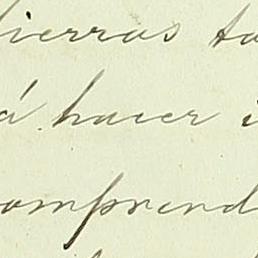 ierras ta
á hacer i
omprend